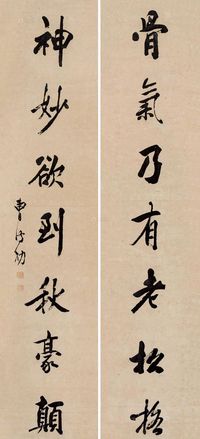 骨氣乃有老松格
神妙欲到秋豪顛
曹鴻勛